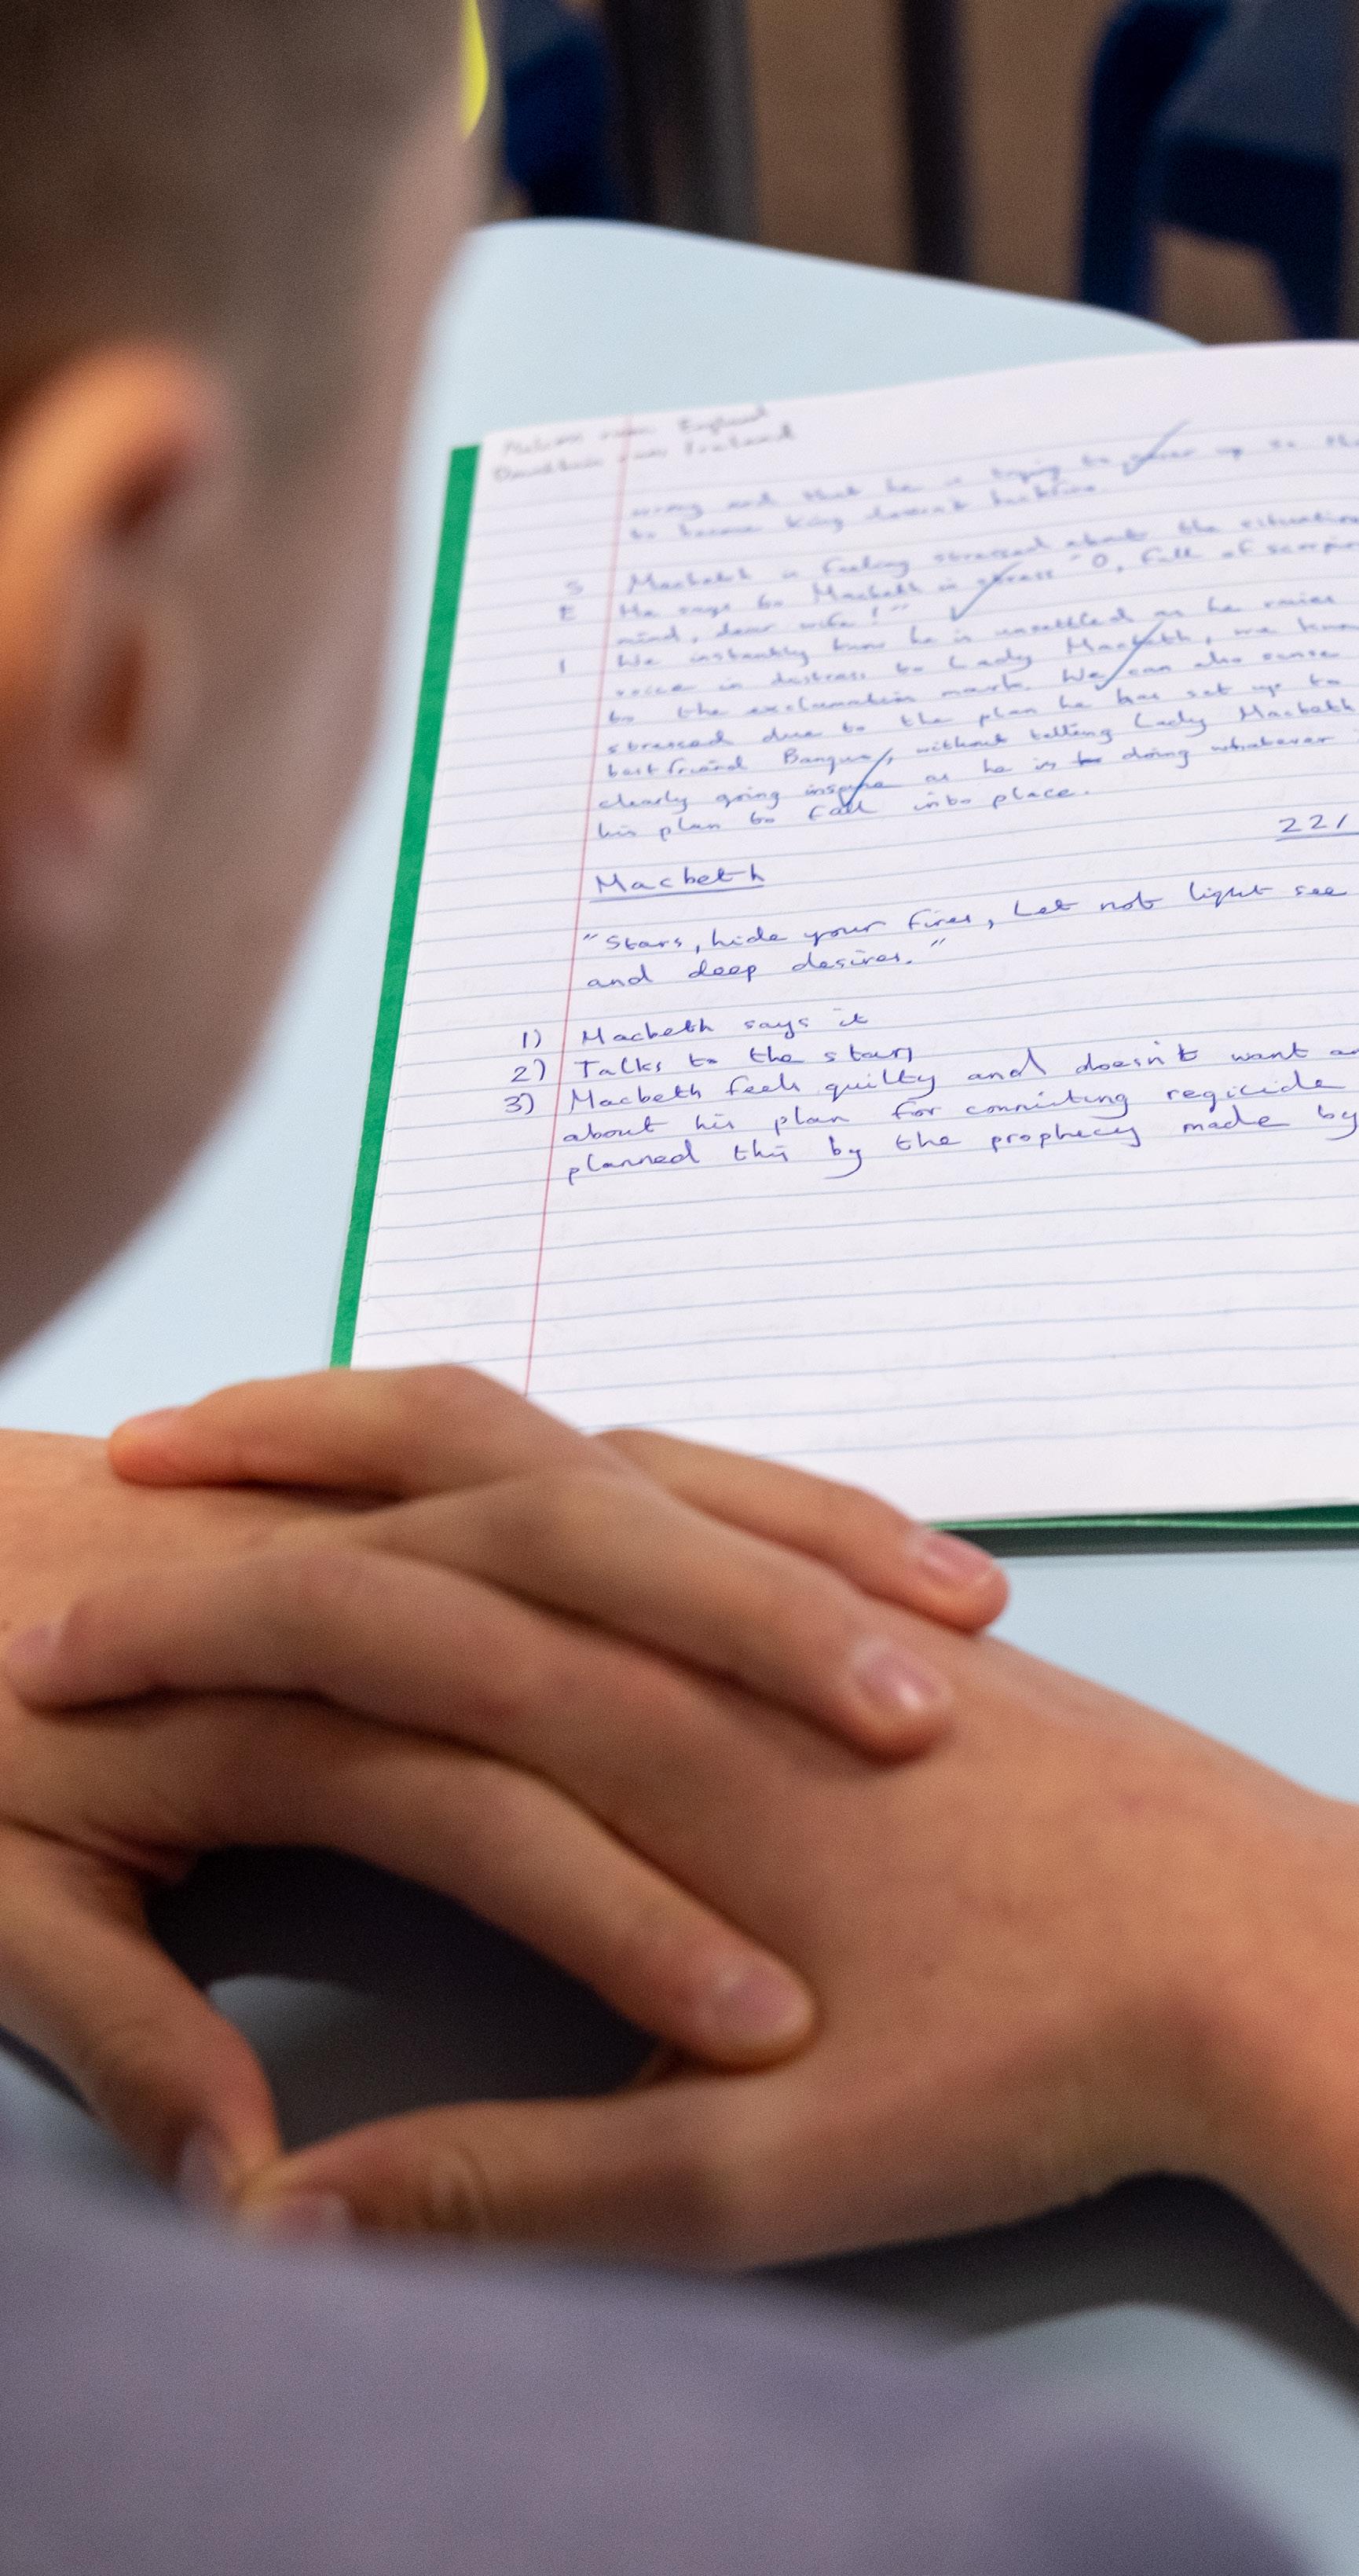 Malcolm England
Donalbain Ireland
wrong and that he is trying to cover up so
to become King doesn't backfire.
S Macbeth is feeling stressed about the situation
E He says to Macbeth in stress "O, full of scorpio
mind, dear wife!"
I We instantly know he is unsettled as he raises
voice in distress to Lady Macbeth, we know
to the exclamation mark. We can also sense
stressed due to the plan he has set up to
best friend Banquo, without telling Lady Macbeth
clearly going as he is doing whatever
his plan to fall into place.
22/
Macbeth
"Stars, hide your fires, Let not light see
and deep desires."
1) Macbeth says it
2) Talks to the stars
3) Macbeth feels guilty and doesn't want
about his plan for commiting regicide
planned this by the prophecy made by